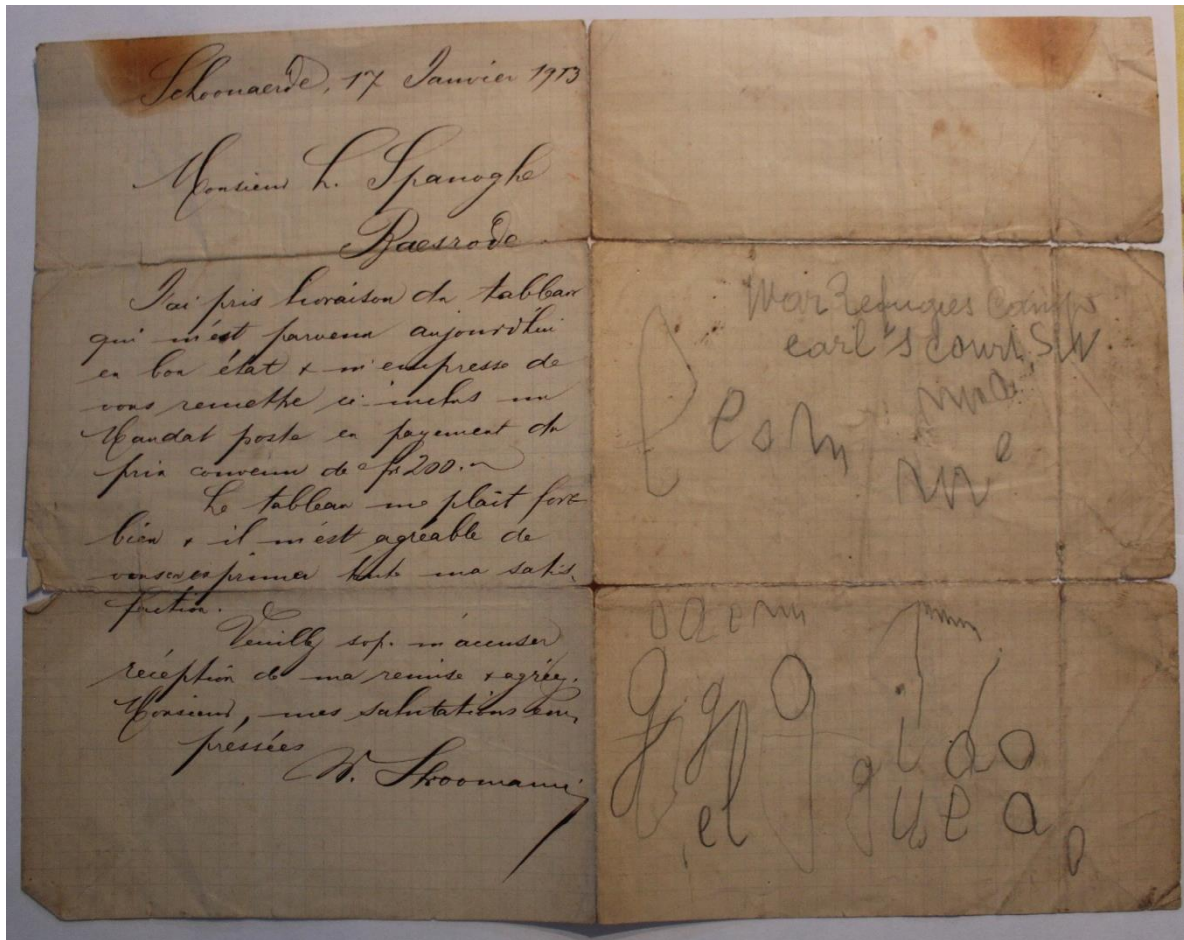 Schoonaerde, 17 Janvier 1913
Monsieur L. Spanoghe
Baesrode.
J'ai pris livraison du tableau
qui m'est parvenu aujourd'hui
en bon état & m'empresse de
vous remettre ci-inclus un
Mandat poste en payement du
prix convenu de fr 200.-
Le tableau me plait fort
bien & il m'est agréable de
vous exprimer toute ma satis-
faction.
Veuillez s.v.p. m'accuser
réception de ma remise & agréez,
Monsieur, mes salutations em-
pressées
War Refugies Camp
earl's court. SW